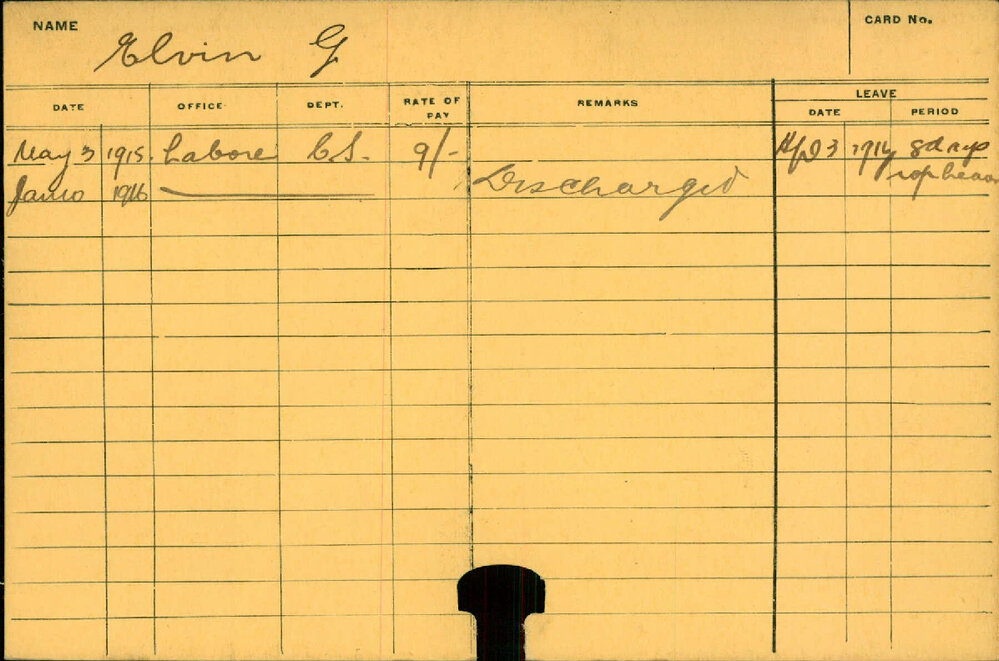 NAME
Elvin G
CARD No.
DATE OFFICE DEPT. RATE OF PAY REMARKS LEAVE
DATE PERIOD
May 3 1915. Labore C.S. 9/- Apl 3 1916 8 days
1916 Discharged